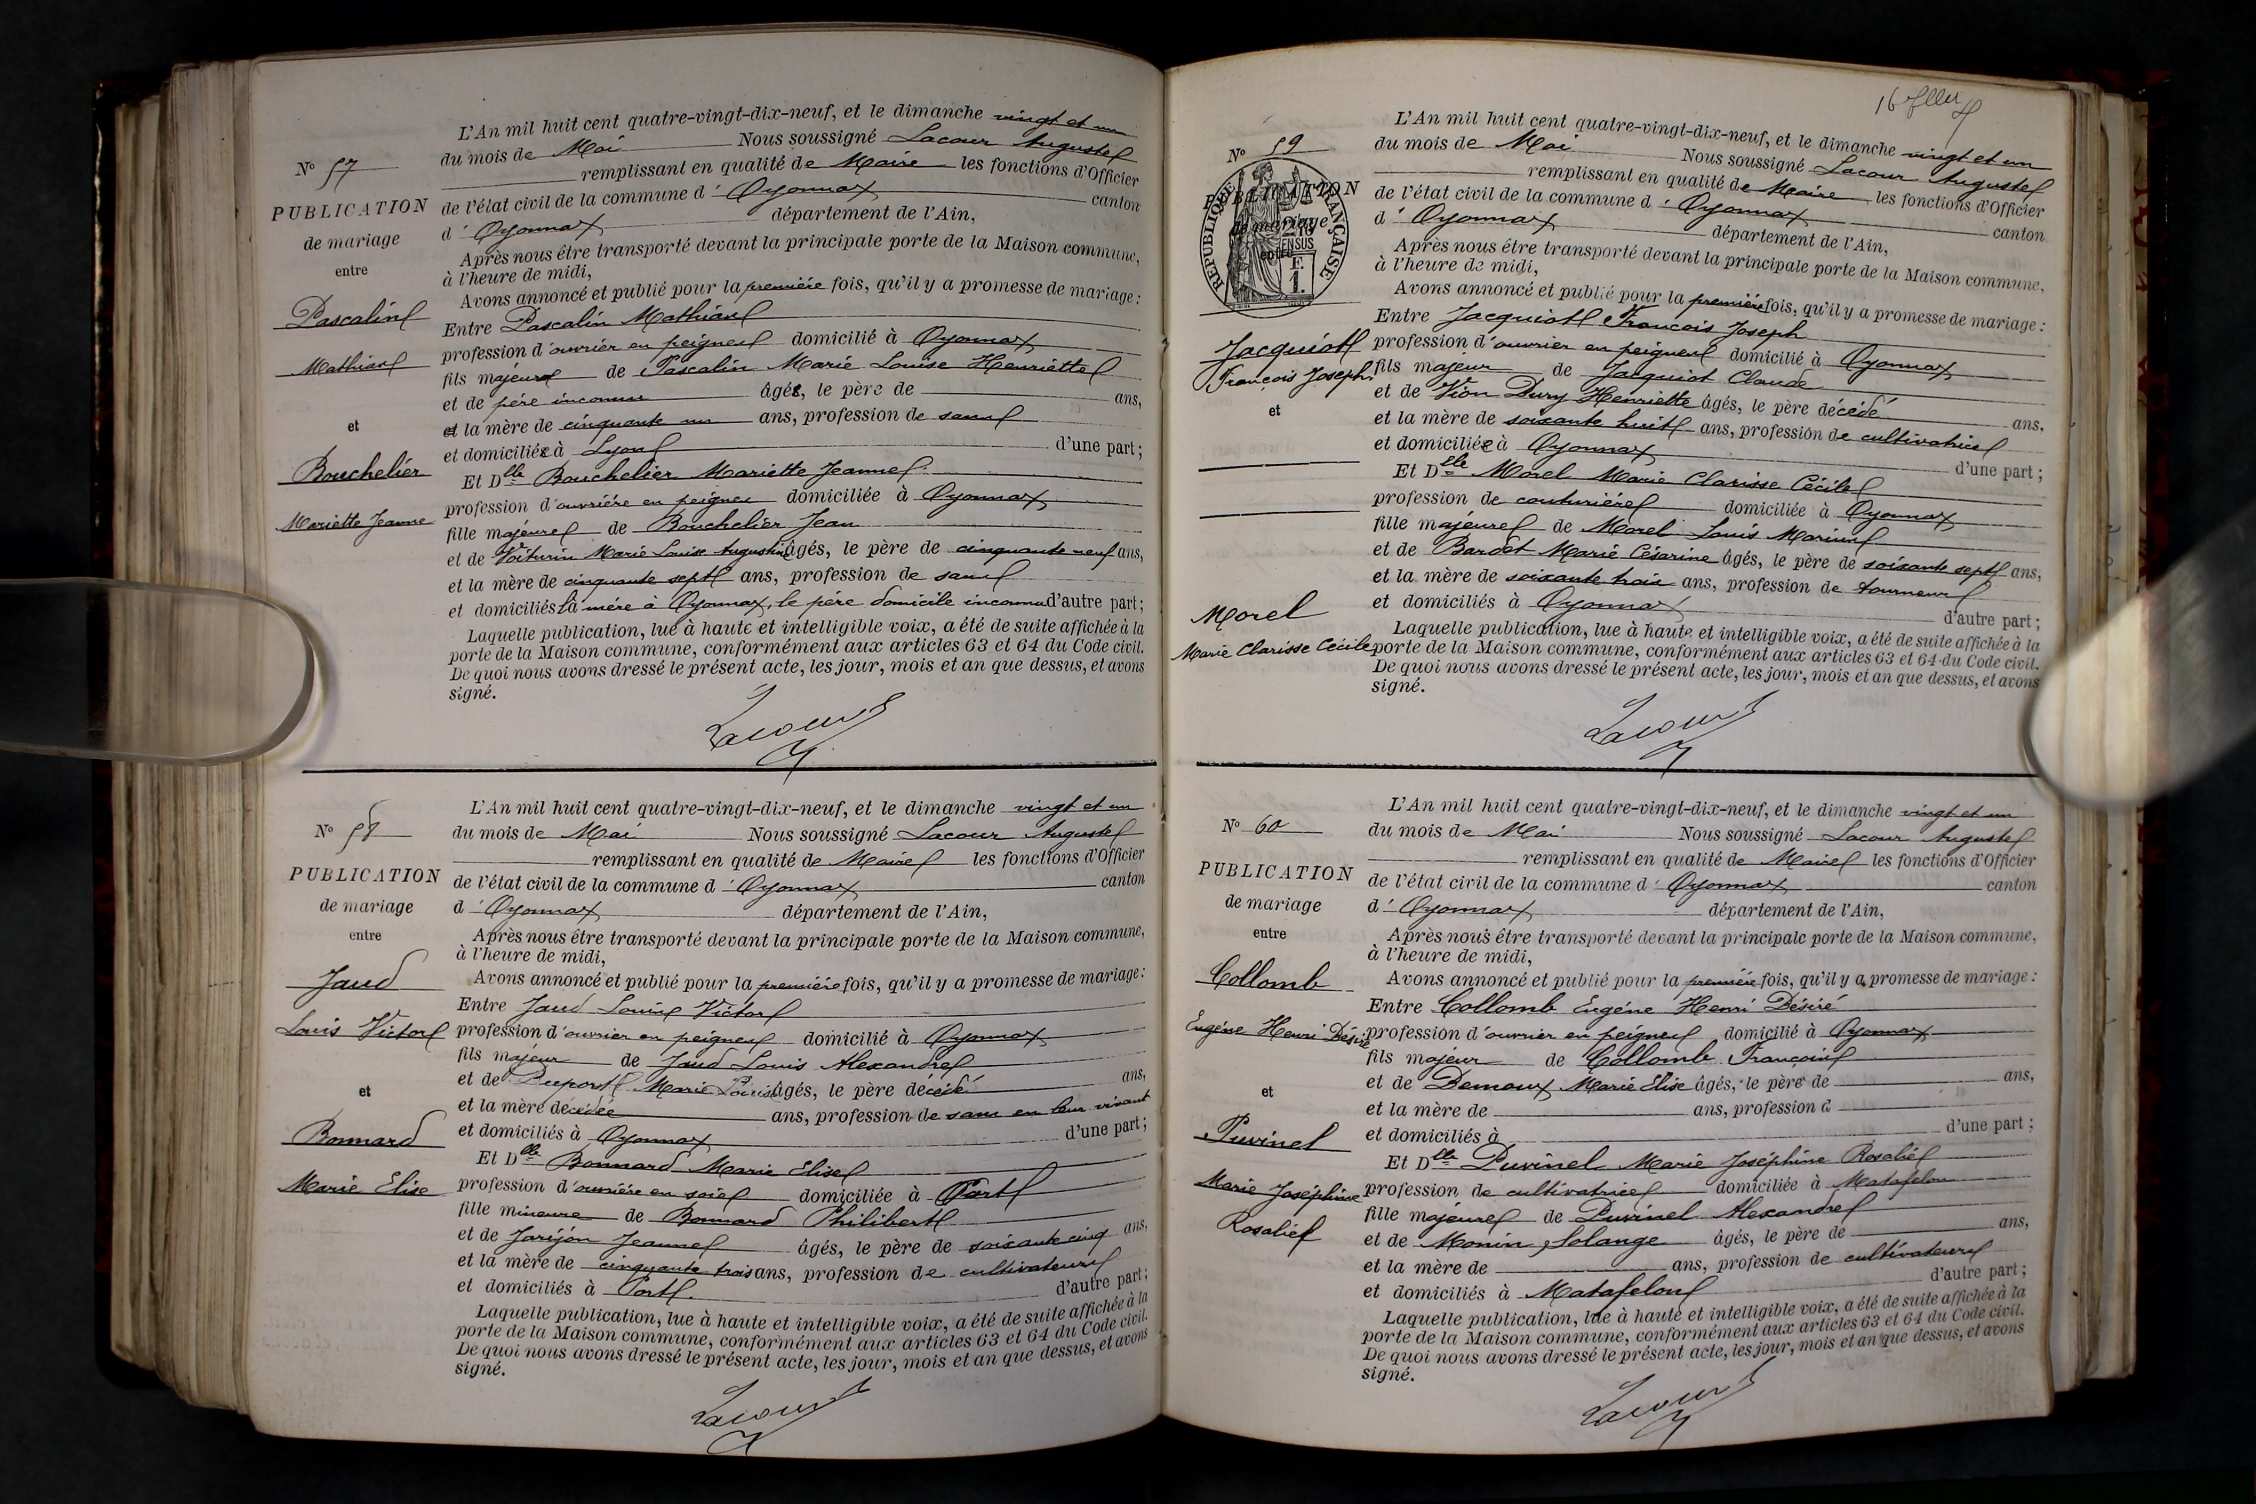 N° 57
PUBLICATION
de mariage
entre
Pascalin
Mathieu
et
Bouchelier
Mariette Jeanne
L'An mil huit cent quatre-vingt-dix-neuf, et le dimanche vingt et un
du mois de Mai Nous soussigné Lacour Auguste
remplissant en qualité de Maire les fonctions d'Officier
de l'état civil de la commune d'Oyonnax canton
d'Oyonnax département de l'Ain,
Après nous être transporté devant la principale porte de la Maison commune,
à l'heure de midi,
Avons annoncé et publié pour la première fois, qu'il y a promesse de mariage :
Entre Pascalin Mathieu
profession d'ouvrier en peignes domicilié à Oyonnax
fils majeur de Pascalin Marie Louise Henriette
et de père inconnu âgés, le père de ans,
et la mère de cinquante un ans, profession de sans
et domiciliée à Lyon d'une part ;
Et Dlle Bouchelier Mariette Jeanne
profession d'ouvrière en peignes domiciliée à Oyonnax
fille majeure de Bouchelier Jean
et de Voiturin Marie Louise Augustine âgés, le père de cinquante neuf ans,
et la mère de cinquante sept ans, profession de sans
et domiciliés la mère à Oyonnax, le père domicile inconnu d'autre part ;
Laquelle publication, lue à haute et intelligible voix, a été de suite affichée à la
porte de la Maison commune, conformément aux articles 63 et 64 du Code civil.
De quoi nous avons dressé le présent acte, les jour, mois et an que dessus, et avons
signé.
Lacour
N° 58
PUBLICATION
de mariage
entre
Jaud
Louis Victor
et
Bonnard
Marie Elise
L'An mil huit cent quatre-vingt-dix-neuf, et le dimanche vingt et un
du mois de Mai Nous soussigné Lacour Auguste
remplissant en qualité de Maire les fonctions d'Officier
de l'état civil de la commune d'Oyonnax canton
d'Oyonnax département de l'Ain,
Après nous être transporté devant la principale porte de la Maison commune,
à l'heure de midi,
Avons annoncé et publié pour la première fois, qu'il y a promesse de mariage :
Entre Jaud Louis Victor
profession d'ouvrier en peignes domicilié à Oyonnax
fils majeur de Jaud Louis Alexandre
et de Dupont Marie Louise âgés, le père décédé ans,
et la mère décédée ans, profession de sans en leur vivant
et domiciliés à Oyonnax d'une part ;
Et Dlle Bonnard Marie Elise
profession d'ouvrière en soie domiciliée à Port
fille mineure de Bonnard Philibert
et de Jarijon Jeanne âgés, le père de soixante cinq ans,
et la mère de cinquante trois ans, profession de cultivateurs
et domiciliés à Port d'autre part ;
Laquelle publication, lue à haute et intelligible voix, a été de suite affichée à la
porte de la Maison commune, conformément aux articles 63 et 64 du Code civil.
De quoi nous avons dressé le présent acte, les jour, mois et an que dessus, et avons
signé.
Lacour
N° 59
PUBLICATION
de mariage
entre
RÉPUBLIQUE FRANÇAISE
Jacquiot
François Joseph
et
Morel
Marie Clarisse Cécile
L'An mil huit cent quatre-vingt-dix-neuf, et le dimanche vingt et un
du mois de Mai Nous soussigné Lacour Auguste
remplissant en qualité de Maire les fonctions d'Officier
de l'état civil de la commune d'Oyonnax canton
d'Oyonnax département de l'Ain,
Après nous être transporté devant la principale porte de la Maison commune,
à l'heure de midi,
Avons annoncé et publié pour la première fois, qu'il y a promesse de mariage :
Entre Jacquiot François Joseph
profession d'ouvrier en peignes domicilié à Oyonnax
fils majeur de Jacquiot Claude
et de Vion Dury Henriette âgés, le père décédé ans,
et la mère de soixante huit ans, profession de cultivatrice
et domiciliée à Oyonnax d'une part ;
Et Dlle Morel Marie Clarisse Cécile
profession de couturière domiciliée à Oyonnax
fille majeure de Morel Louis Marin
et de Bardet Marie Césarine âgés, le père de soixante sept ans,
et la mère de soixante trois ans, profession de tourneur
et domiciliés à Oyonnax d'autre part ;
Laquelle publication, lue à haute et intelligible voix, a été de suite affichée à la
porte de la Maison commune, conformément aux articles 63 et 64 du Code civil.
De quoi nous avons dressé le présent acte, les jour, mois et an que dessus, et avons
signé.
Lacour
N° 60
PUBLICATION
de mariage
entre
Collomb
Eugène Henri Désiré
et
Puvinel
Marie Joséphine
Rosalie
L'An mil huit cent quatre-vingt-dix-neuf, et le dimanche vingt et un
du mois de Mai Nous soussigné Lacour Auguste
remplissant en qualité de Maire les fonctions d'Officier
de l'état civil de la commune d'Oyonnax canton
d'Oyonnax département de l'Ain,
Après nous être transporté devant la principale porte de la Maison commune,
à l'heure de midi,
Avons annoncé et publié pour la première fois, qu'il y a promesse de mariage :
Entre Collomb Eugène Henri Désiré
profession d'ouvrier en peignes domicilié à Oyonnax
fils majeur de Collomb François
et de Demoux Marie Elise âgés, le père de ans,
et la mère de ans, profession d
et domiciliés à d'une part ;
Et Dlle Puvinel Marie Joséphine Rosalie
profession de cultivatrice domiciliée à Matafelon
fille majeure de Puvinel Alexandre
et de Monin Solange âgés, le père de ans,
et la mère de ans, profession de cultivateurs
et domiciliés à Matafelon d'autre part ;
Laquelle publication, lue à haute et intelligible voix, a été de suite affichée à la
porte de la Maison commune, conformément aux articles 63 et 64 du Code civil.
De quoi nous avons dressé le présent acte, les jour, mois et an que dessus, et avons
signé.
Lacour